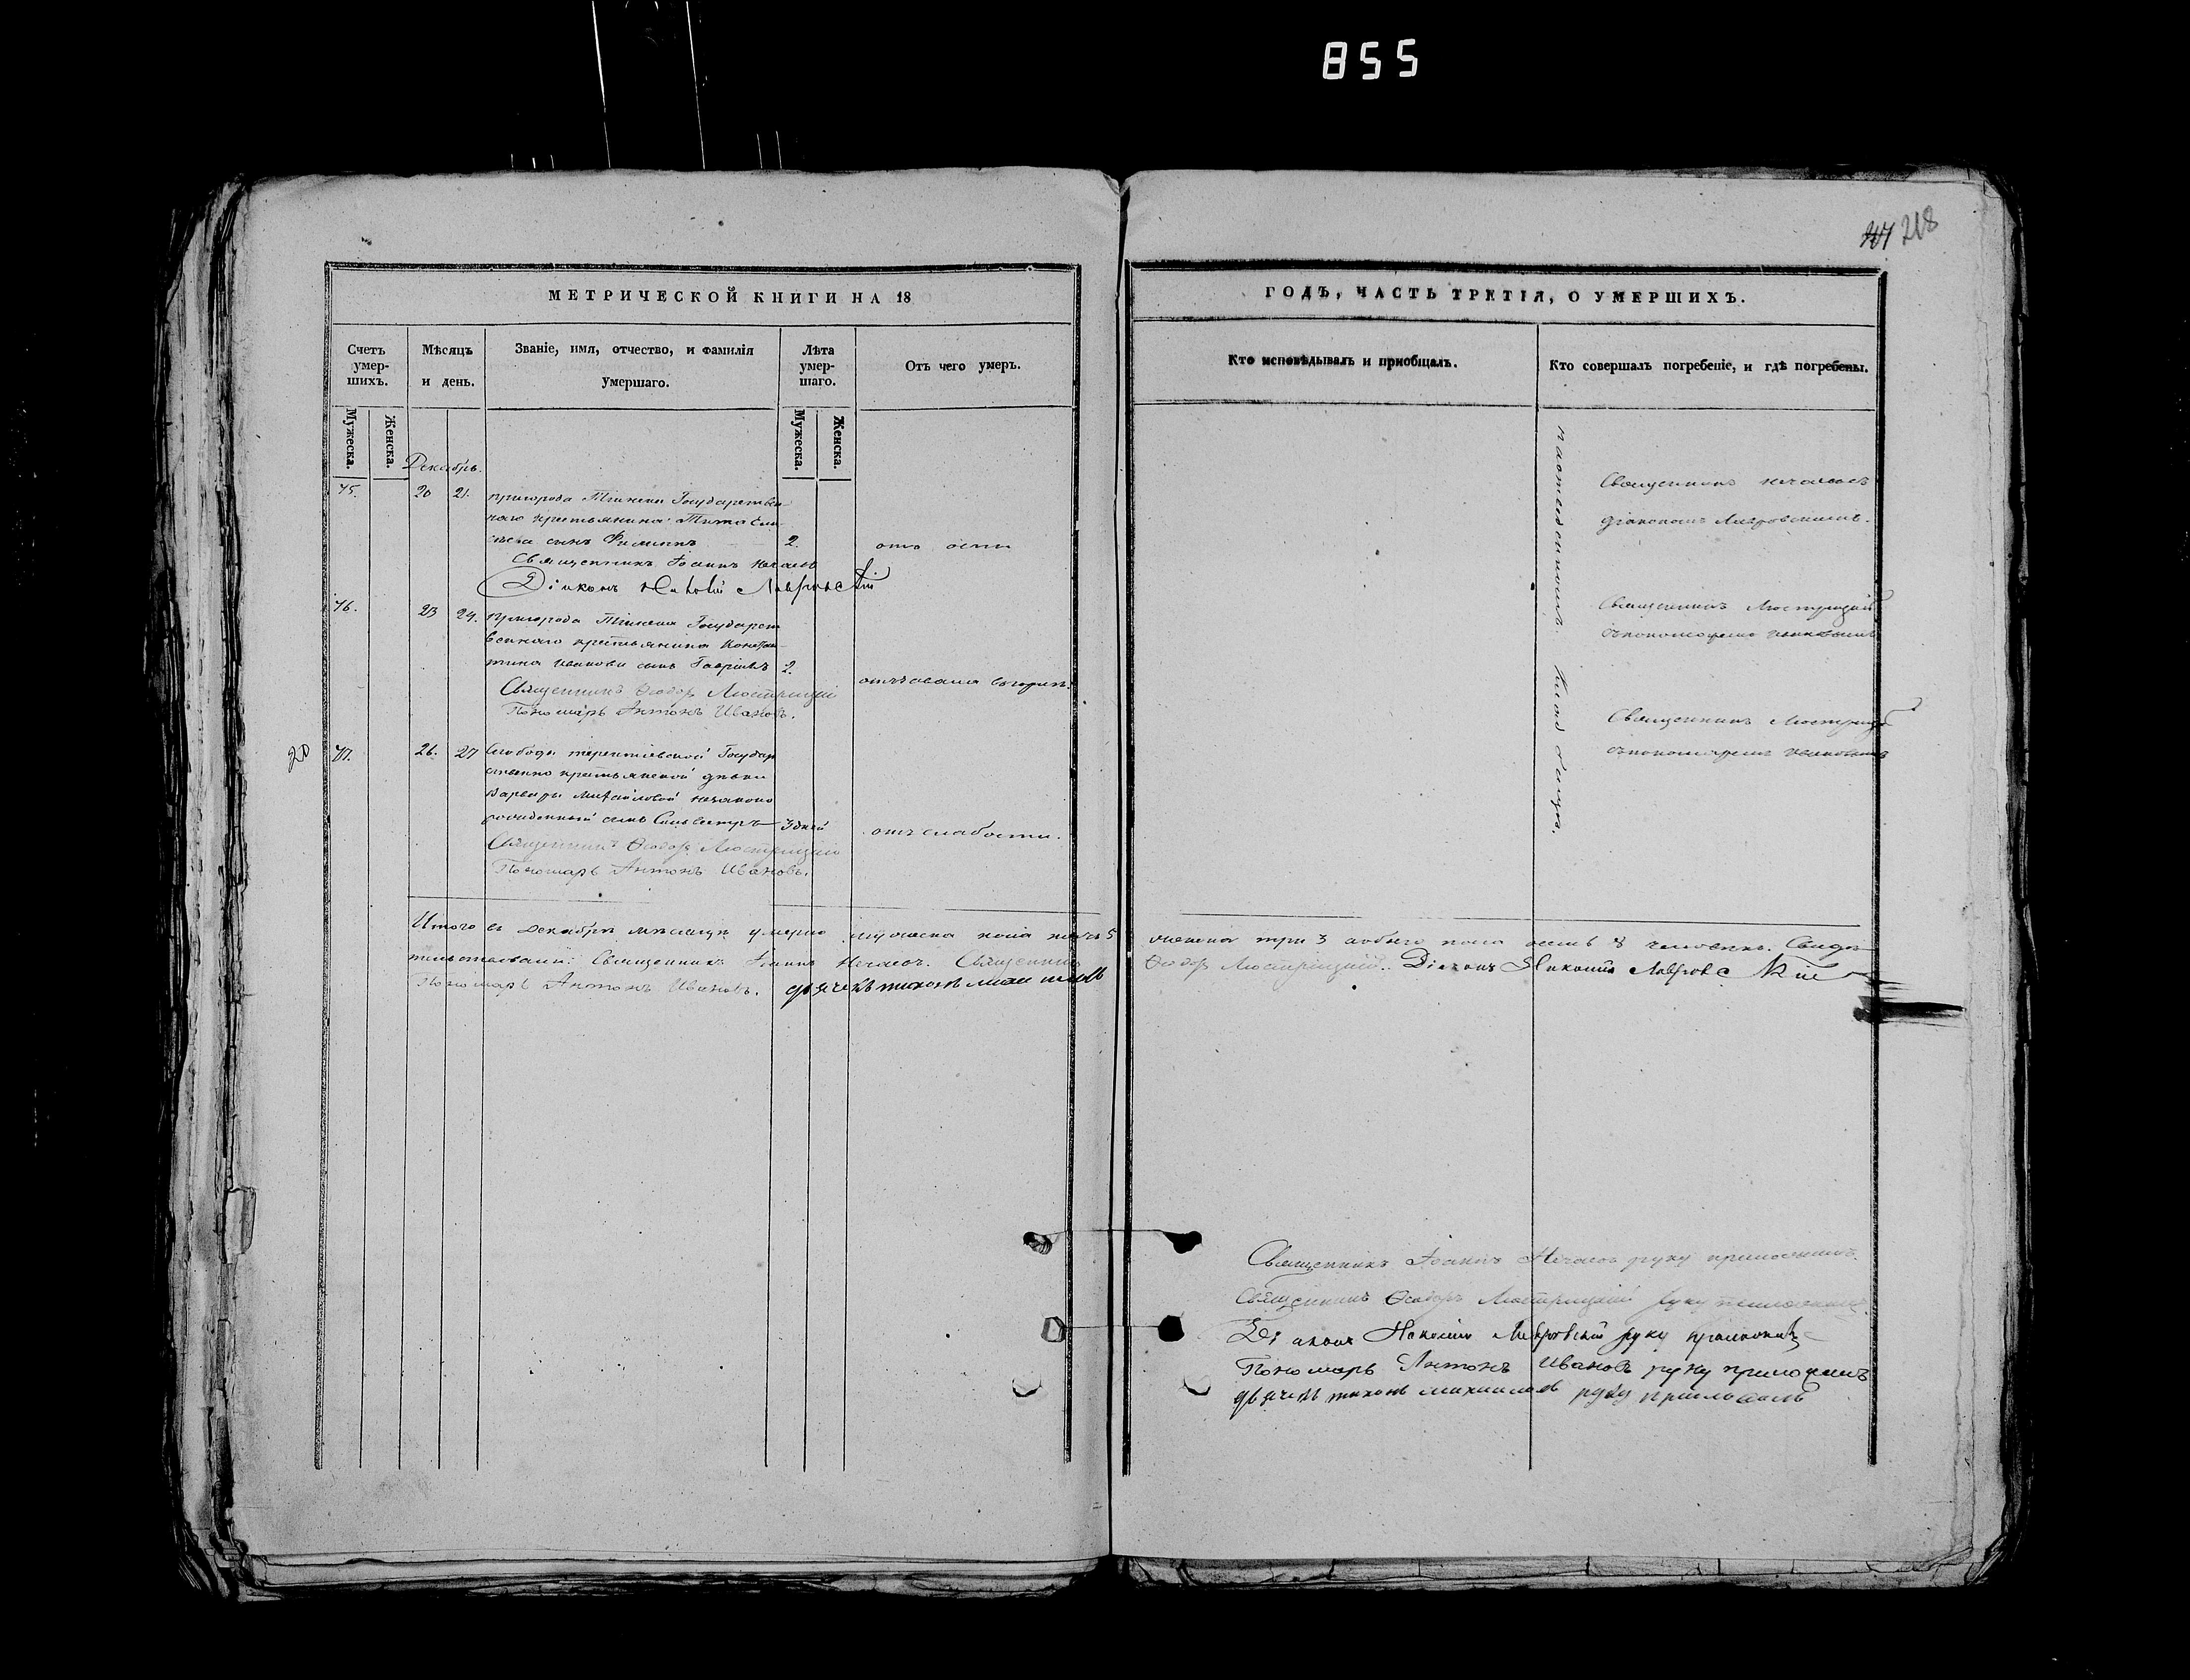 855
218
МЕТРИЧЕСКОЙ КНИГИ НА 18
ГОДЪ, ЧАСТЬ ТРЕТІЯ, О УМЕРШИХЪ.
Счетъ умер-шихъ.
Мѣсяцъ и день.
Званіе, имя, отчество, и фамилія
умершаго.
Лѣта умер-шаго.
Отъ чего умеръ.
Кто исповѣдывалъ и пріобщалъ.
Кто совершалъ погребеніе, и гдѣ погребены.
Мужеска.
Женска.
Мужеска.
Женска.
Декабрь.
75. 20 21. пригорода Тіинска Государствен-
наго крестьянина Тита
сынъ Филиппъ 2. отъ оспы
Священникъ Іоаннъ Нечаевъ
Діаконъ Лавровскій
Священникъ Нечаевъ
діакономъ Лавровскимъ.
76. 23 24. пригорода Тіинска Государст
веннаго крестьянина Констан-
тина Иванова сынъ Гавріилъ 2.
Священникъ Ѳеодоръ Люстрицкій
Пономарь Антонъ Ивановъ.
Священникъ Люстрицкій
съ пономаремъ Ивановымъ
20 77. 26. 27 Слободы терентіевской Государ
ственно крестьянской дѣвки
Варвары Михайловой незаконо
рожденный сынъ Сильвестръ 3 дней отъ слабости.
Священникъ Ѳеодоръ Люстрицкій
Пономарь Антонъ Ивановъ.
Священникъ Люстрицкій
съ пономаремъ Ивановымъ
Итого въ Декабрѣ мѣсяцѣ умерло мужеска пола пять 5
женска три 3 обоего пола осемь 8 человѣкъ. Свидѣ
тельствовали: Священникъ Іоаннъ Нечаевъ. Священникъ
Ѳеодоръ Люстрицкій. Діаконъ Лавровскій
Пономарь Антонъ Ивановъ. дьячекъ тихонъ михаиловъ
Священникъ Іоаннъ Нечаевъ руку приложилъ.
Священникъ Ѳеодоръ Люстрицкій руку приложилъ
Діаконъ Лавровскій руку приложилъ
Пономарь Антонъ Ивановъ руку приложилъ
дьячекъ тихонъ михаиловъ руку приложилъ